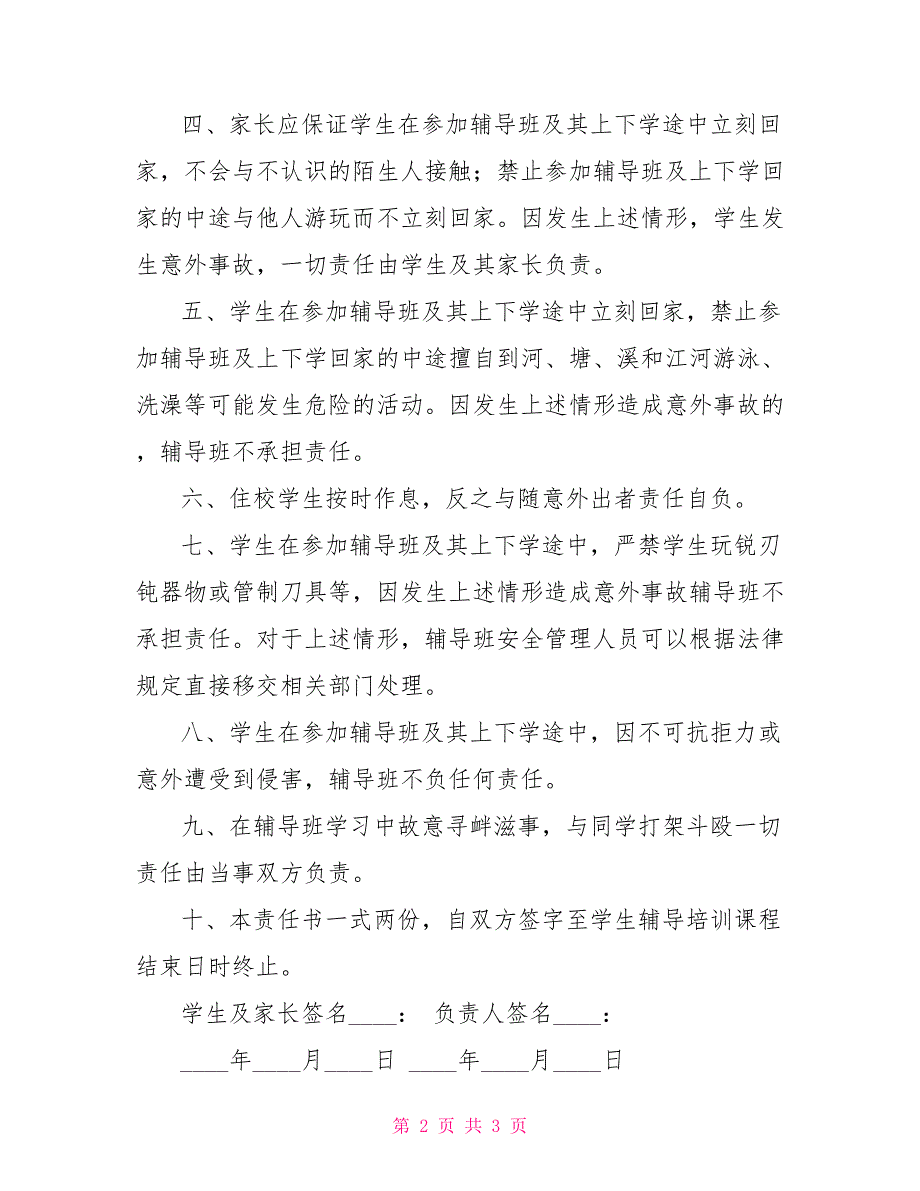 四、家长应保证学生在参加辅导班及其上下学途中立刻回
家，不会与不认识的陌生人接触；禁止参加辅导班及上下学回
家的中途与他人游玩而不立刻回家。因发生上述情形，学生发
生意外事故，一切责任由学生及其家长负责。
五、学生在参加辅导班及其上下学途中立刻回家，禁止参
加辅导班及上下学回家的中途擅自到河、塘、溪和江河游泳、
洗澡等可能发生危险的活动。因发生上述情形造成意外事故的
，辅导班不承担责任。
六、住校学生按时作息，反之与随意外出者责任自负。
七、学生在参加辅导班及其上下学途中，严禁学生玩锐刃
钝器物或管制刀具等，因发生上述情形造成意外事故辅导班不
承担责任。对于上述情形，辅导班安全管理人员可以根据法律
规定直接移交相关部门处理。
八、学生在参加辅导班及其上下学途中，因不可抗拒力或
意外遭受到侵害，辅导班不负任何责任。
九、在辅导班学习中故意寻衅滋事，与同学打架斗殴一切
责任由当事双方负责。
十、本责任书一式两份，自双方签字至学生辅导培训课程
结束日时终止。
学生及家长签名____： 负责人签名____：
____年____月____日 ____年____月____日
第 2 页 共 3 页